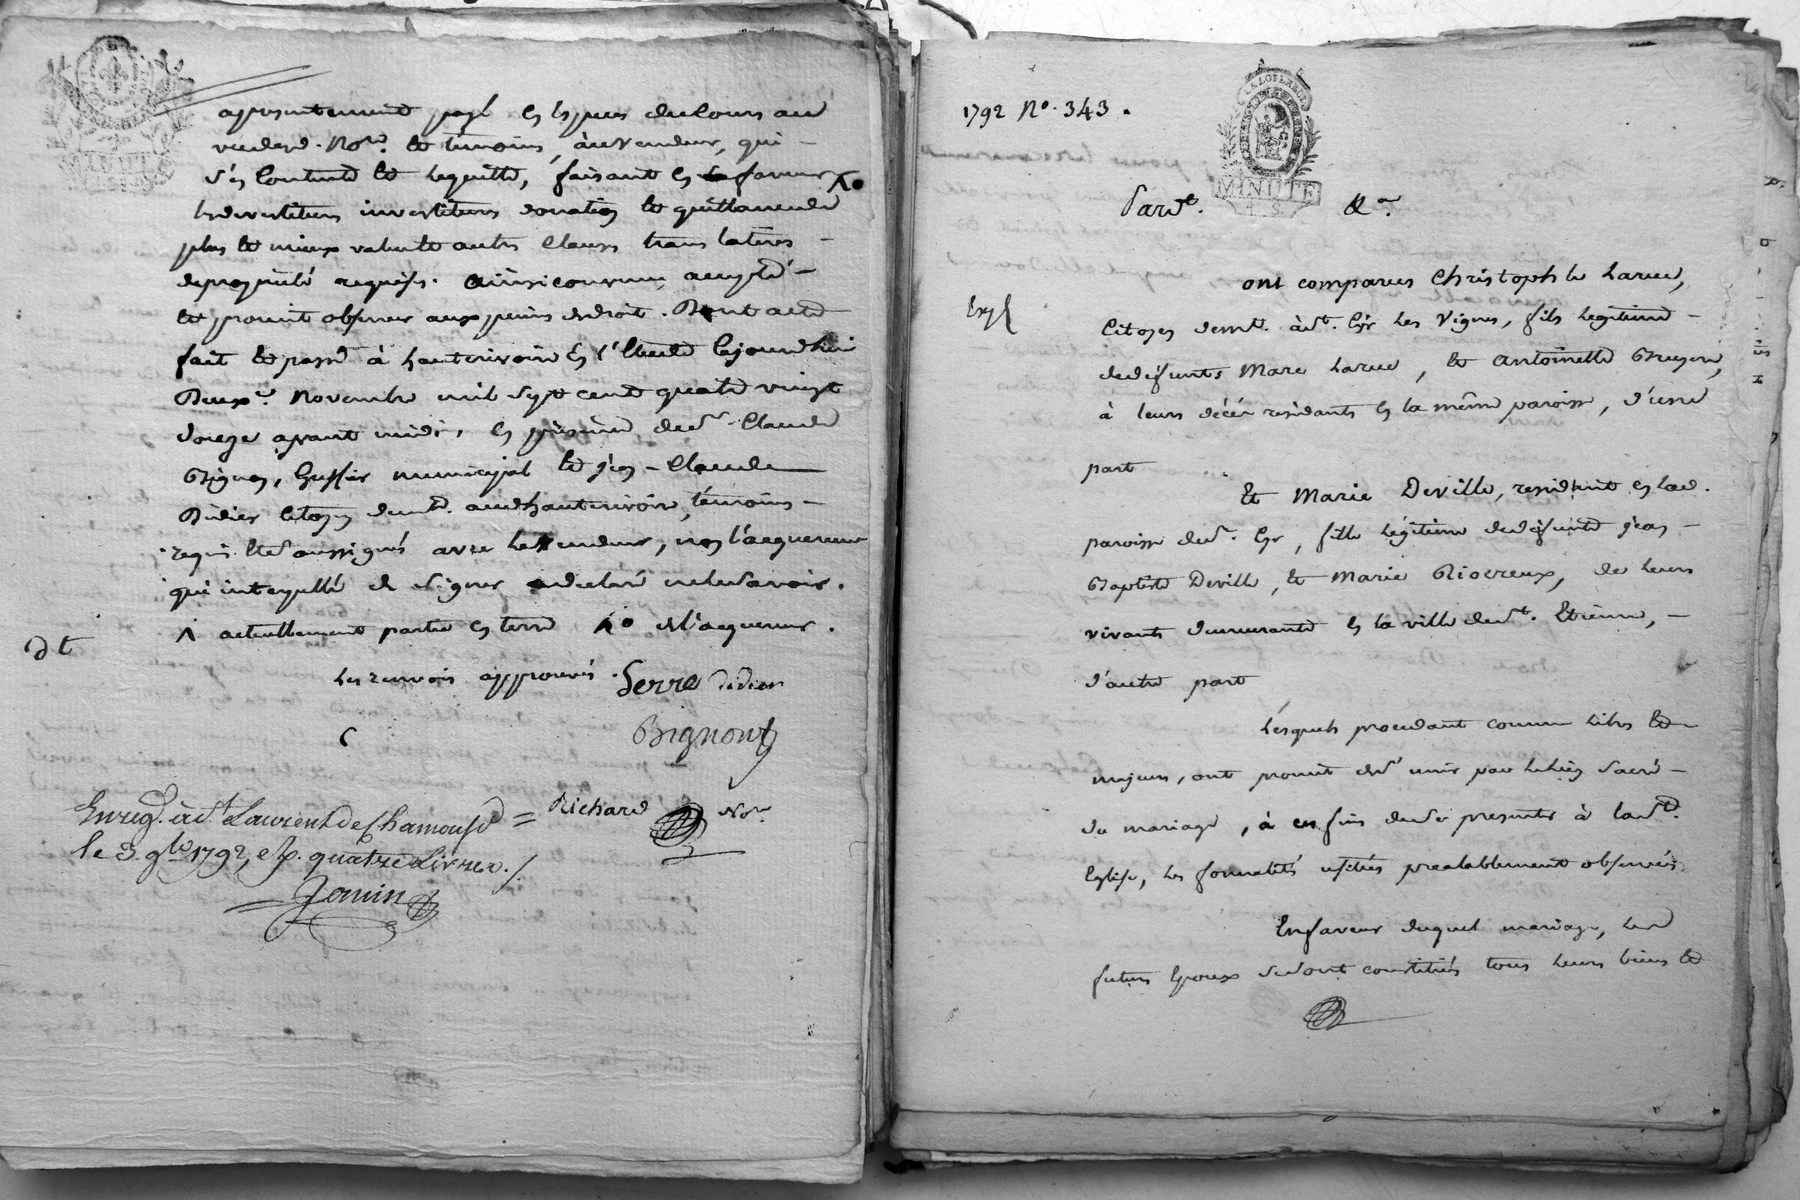 apresentement payé en espèces du cours au
vu desd. Nore. et temoins, au vendeur, qui -
s'en contente et le quitte, faisant en sa faveur
les devestitures investitures donation et quittance de
plus et mieux value et autres clauses translatives -
de propriété requises. ainsi convenu, accepté -
et promit observer aux peines de droit. Dont acte
fait et passé à hauterivoire en l'étude cejourdhui
Deuxe. Novembre mil sept cent quatre vingt
douze avant midi, en présence de sr. Claude
Bignon, huissier municipal et jean - Claude
Didier citoyen demt. aud hauterivoire, témoins -
requis et soussignés avec le vendeur, non l'acquereur
qui interpellé de signer a declaré ne le savoir.
actuellement partie en terre de l'acquereur.
dt
les renvois approuvés. Serre didier
Bignon
Richard Nore.
Enreg. à st. Laurent de Chamousset
le 3. 9bre 1792, quatre Livres ./.
Jomin
1792 No. 343.
MINUTE
Pardt. &a.
ont comparus Christophle Larue,
Expé
Citoyen demt. à st. Cyr les Vignes, fils legitime -
de defunts Marc Larue, et Antoinette Bruyere,
à leurs décés residants en la même paroisse, d'une
part
Et Marie Deville, residante en lad.
paroisse de st. Cyr, fille légitime de defunts jean -
Baptiste Deville, et Marie Rioereux, de leurs
vivants demeurants en la ville de st. Etienne, -
d'autre part
Lesquels procedant comme libres et
majeurs, ont promit de s'unir par le lien sacré -
du mariage, à ces fins de se presenter à la ste.
Eglise, les formalités usitées prealablement observées
En faveur duquel mariage, les
futurs Epoux se sont constitués tous leurs biens et